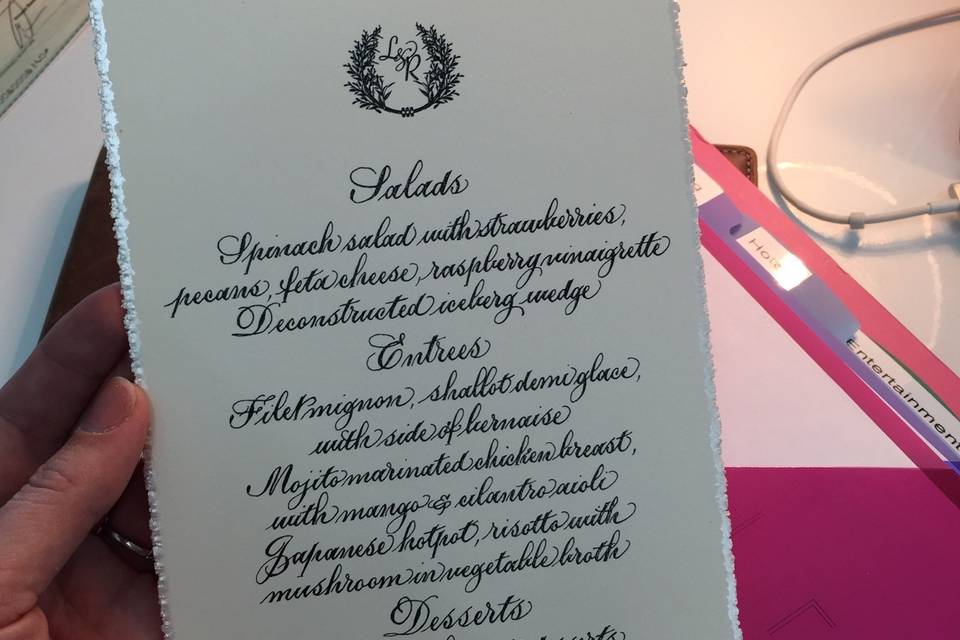 L&R
Salads
Spinach salad with strawberries,
pecans, feta cheese, raspberry vinaigrette
Deconstructed iceberg wedge
Entrees
Filet mignon, shallot demi glace,
with side of bernaise
Mojito marinated chicken breast,
with mango & cilantro aioli
Japanese hotpot, risotto with
mushroom in vegetable broth
Desserts
Hote
Entertainment